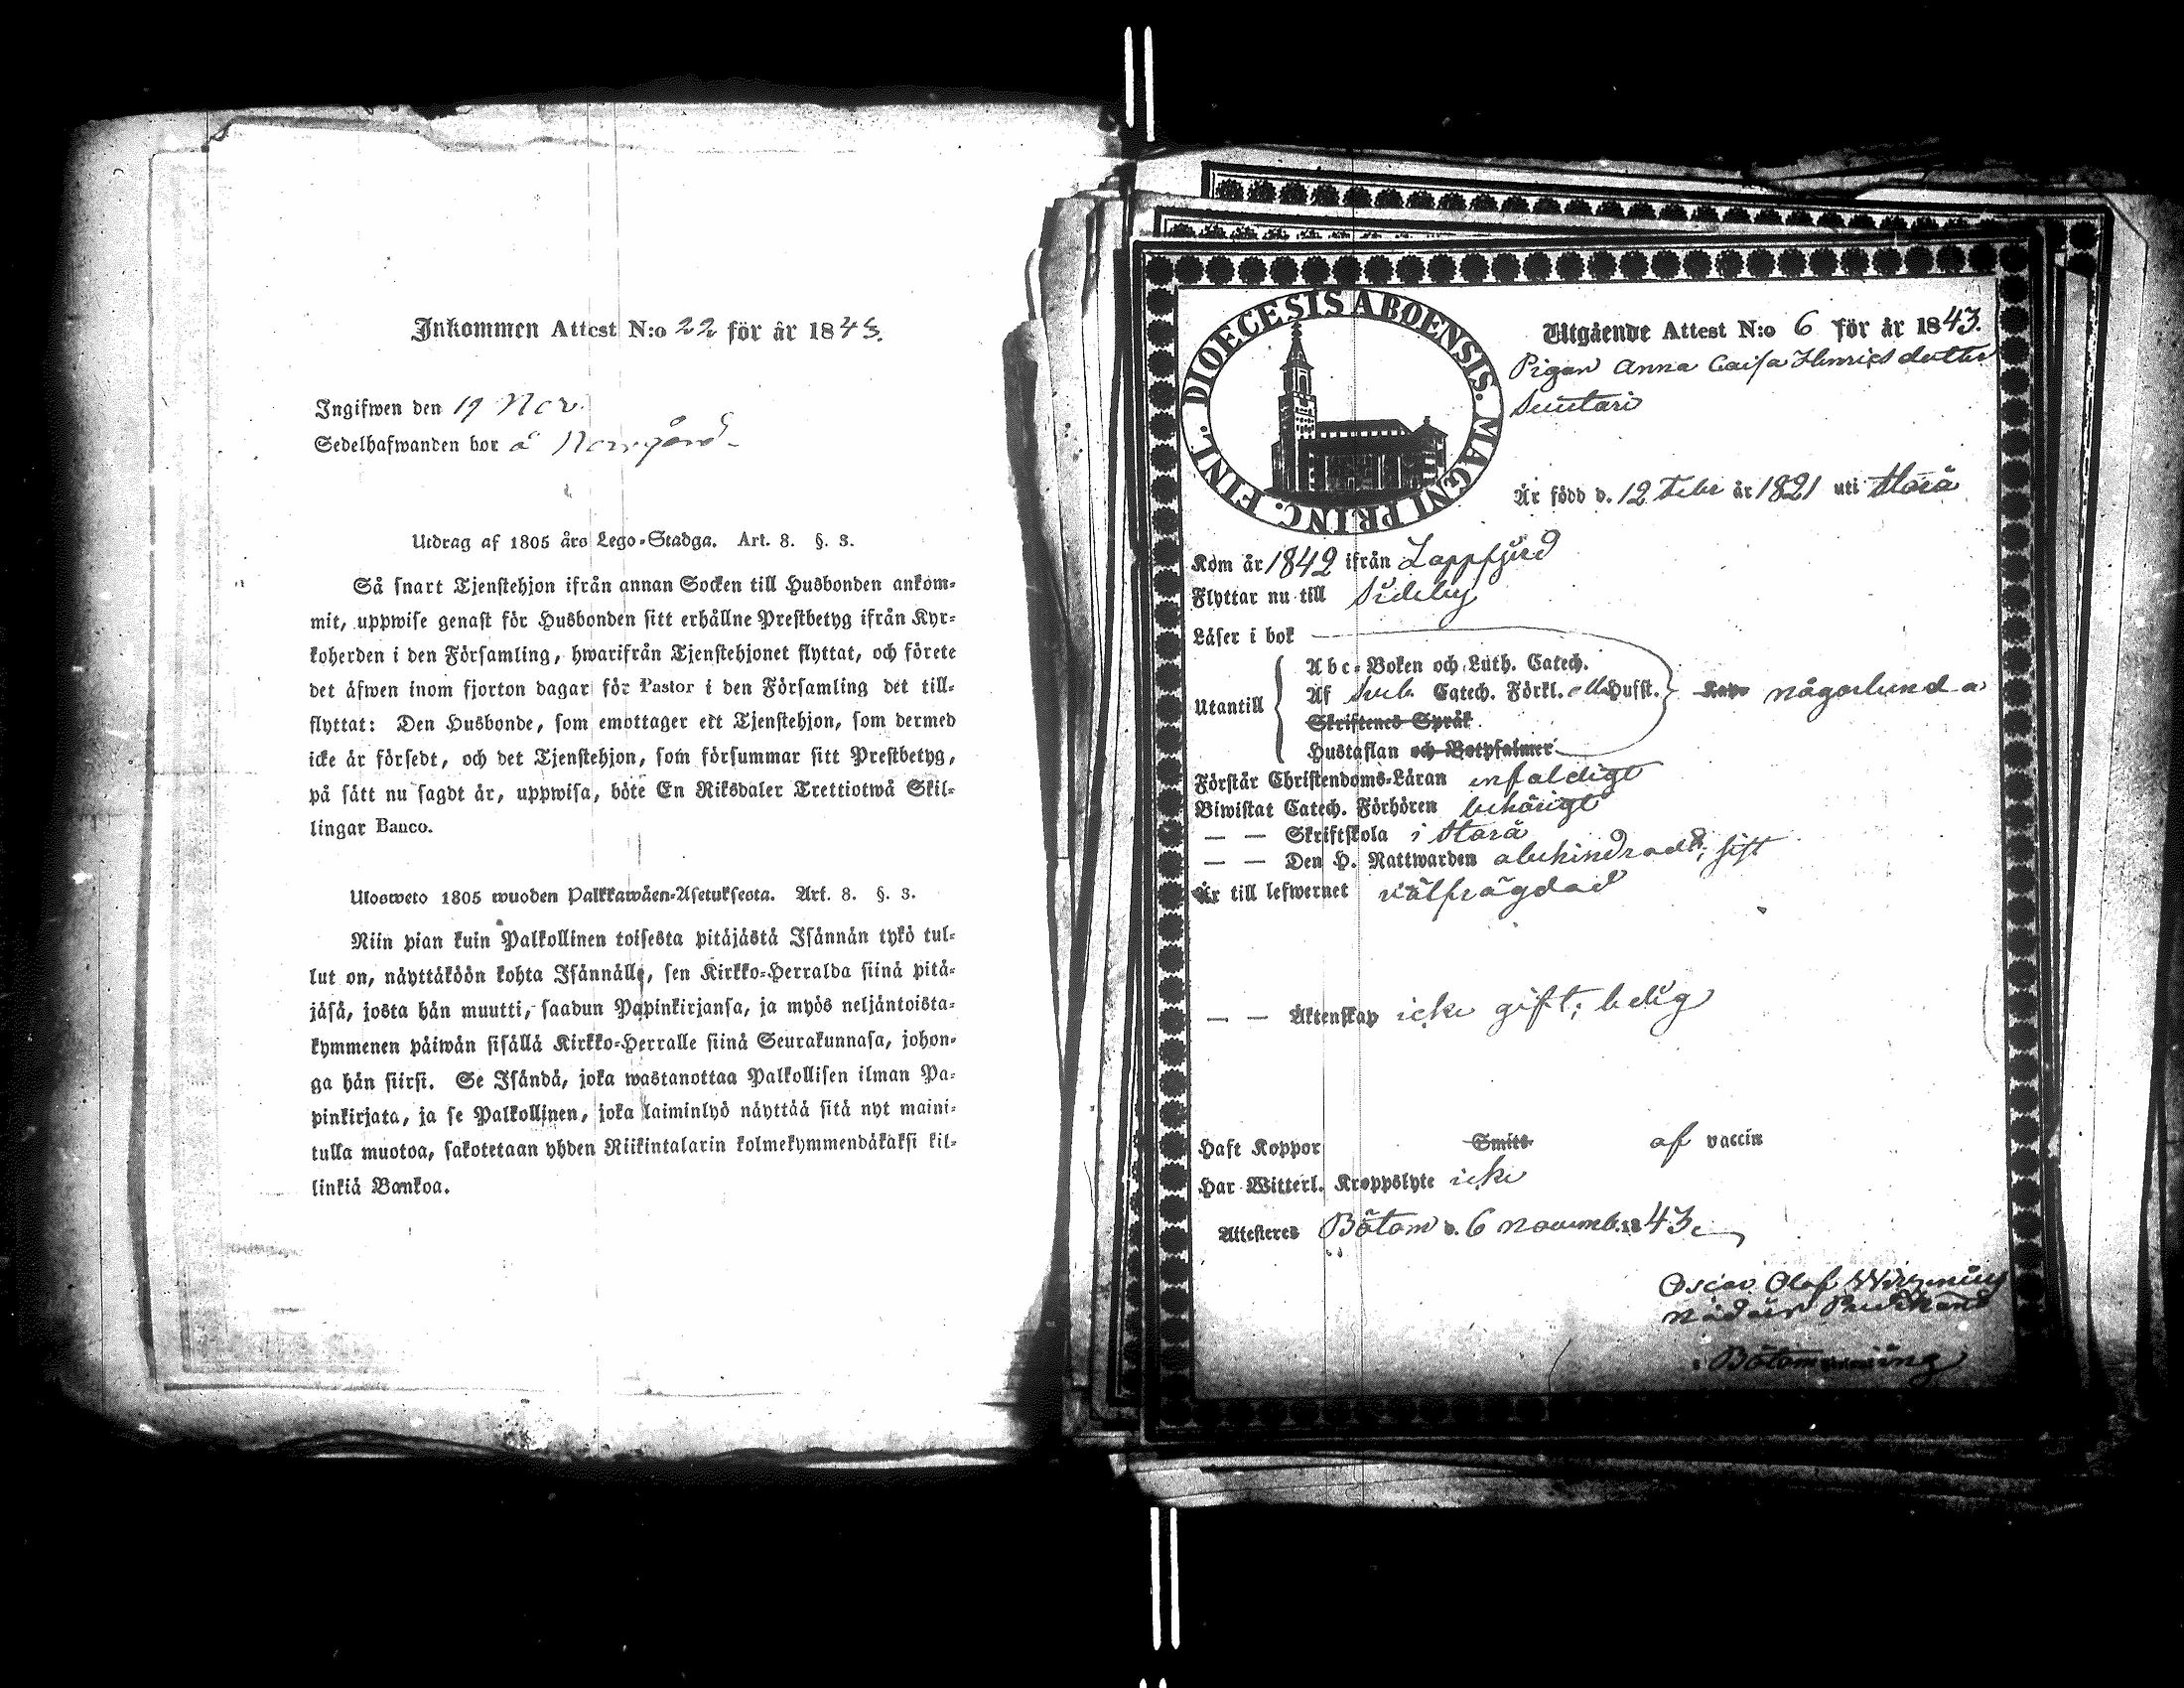 Inkommen Attest N:o 22 för år 1843.
Ingifwen den 19 Nov.
Sedelhafwanden bor å Norrgård
Utdrag af 1805 års Lego-Stadga. Art. 8. §. 3.
Så snart Tjenstehjon ifrån annan Socken till Husbonden ankom-
mit, uppwise genast för Husbonden sitt erhållne Prestbetyg ifrån Kyr-
koherden i den Församling, hwarifrån Tjenstehjonet flyttat, och förete
det äfwen inom fjorton dagar för Pastor i den Församling det till-
flyttat: Den Husbonde, som emottager ett Tjenstehjon, som dermed
icke är försedt, och det Tjenstehjon, som försummar sitt Prestbetyg,
på sätt nu sagdt är, uppwisa, böte En Riksdaler Trettiotwå Skil-
lingar Banco.
Ulosweto 1805 wuoden Palkkawäen-Asetuksesta. Art. 8. §. 3.
Niin pian kuin Palkollinen toisesta pitäjästä Isännän tykö tul-
lut on, näyttäköön kohta Isännälle, sen Kirkko-Herralda siinä pitä-
jäsä, josta hän muutti, saadun Papinkirjansa, ja myös neljäntoista-
kymmenen päiwän sisällä Kirkko-Herralle siinä Seurakunnasa, johon-
ga hän siirsi. Se Isändä, joka wastanottaa Palkollisen ilman Pa-
pinkirjata, ja se Palkollinen, joka laiminlyö näyttää sitä nyt maini-
tulla muotoa, sakotetaan yhden Riikintalarin kolmekymmendäkaksi kil-
linkiä Bankoa.
DIOECESIS ABOENSIS. MAGNI PRINC. FINL.
Utgående Attest N:o 6 för år 1843.
Pigan Anna Caisa Henricsdotter
Är född d. 12 Febr år 1821 uti Storå
Kom år 1842 ifrån Lappfjerd
Flyttar nu till Sideby
Läser i bok
Utantill
Abc-Boken och Luth. Catech.
Af Sveb. Catech. Förkl. Husst.
någorlunda
Skriftenes Språk
Hustaflan och Botpsalmer
Förstår Christendoms-Läran enfaldigt
Biwistat Catech. Förhören behörigt
— — Skriftskola i Storå
— — Den H. Nattwarden obehindrad
Är till lefwernet välfrägdad
— — Äktenskap icke gift; ledig
Haft Koppor Smitt af vaccin
Har Witterl. Kroppslyte icke
Attesteres Bötom d. 6 Novemb. 1843.
Oscar Olof
Bötom